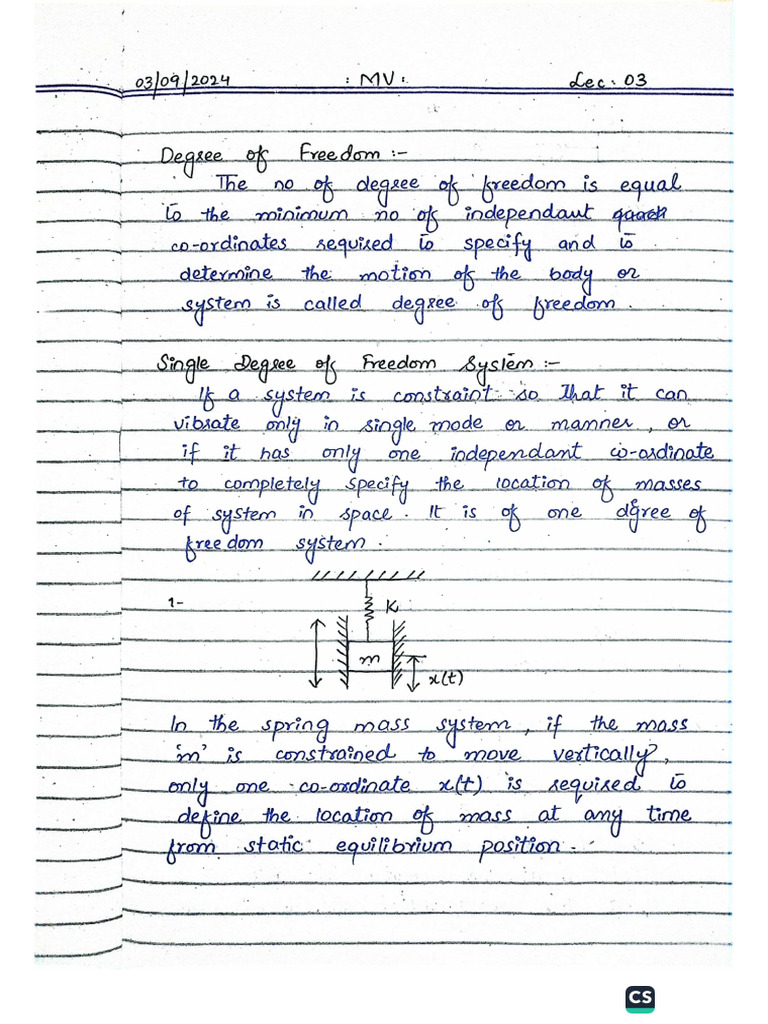 03/09/2024 : MV : Lec. 03
Degree of Freedom :-
The no of degree of freedom is equal
to the minimum no of independant
co-ordinates required to specify and to
determine the motion of the body or
system is called degree of freedom.
Single Degree of Freedom System :-
If a system is constraint so that it can
vibrate only in single mode or manner, or
if it has only one independant co-ordinate
to completely specify the location of masses
of system in space. It is of one degree of
freedom system.
1- K
m
x(t)
In the spring mass system, if the mass
'm' is constrained to move vertically,
only one co-ordinate x(t) is required to
define the location of mass at any time
from static equilibrium position.
CS